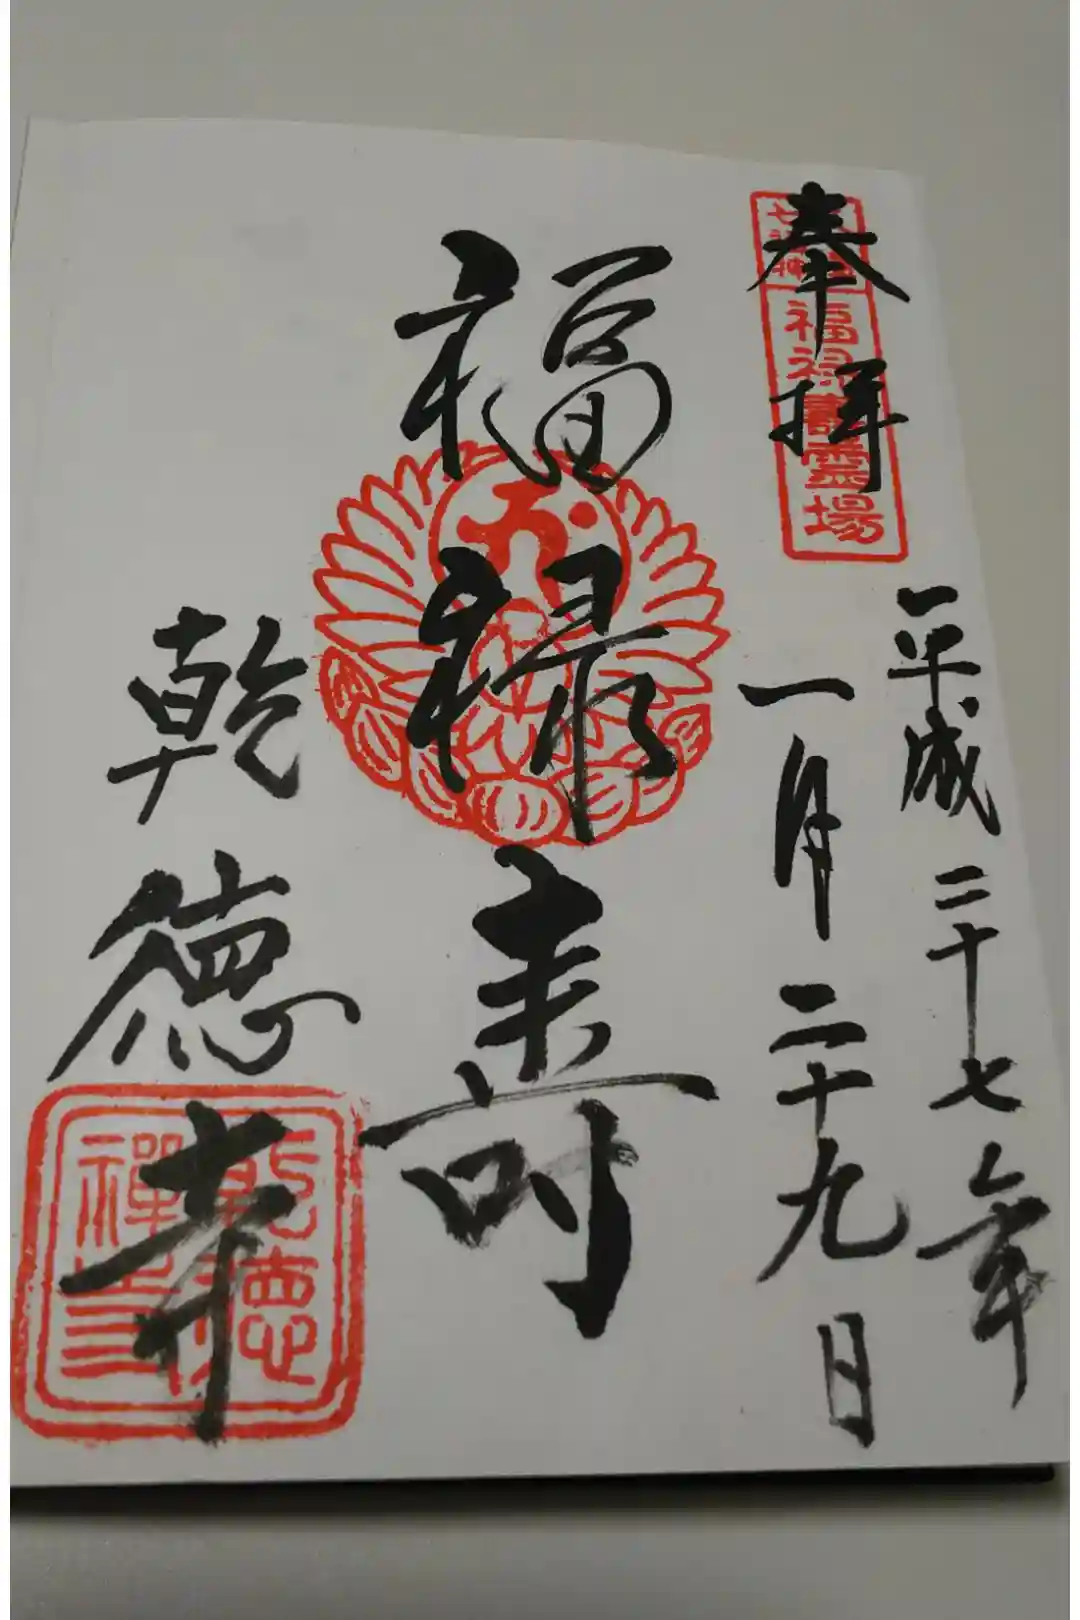 奉拝
七福神
福禄寿霊場
平成二十七年
一月二十九日
福禄寿
乾徳寺
乾徳
禅寺